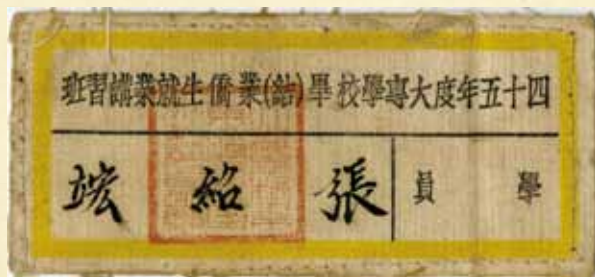 四十五年度大專學校畢(結)業僑生就業講習班
學員 張紹